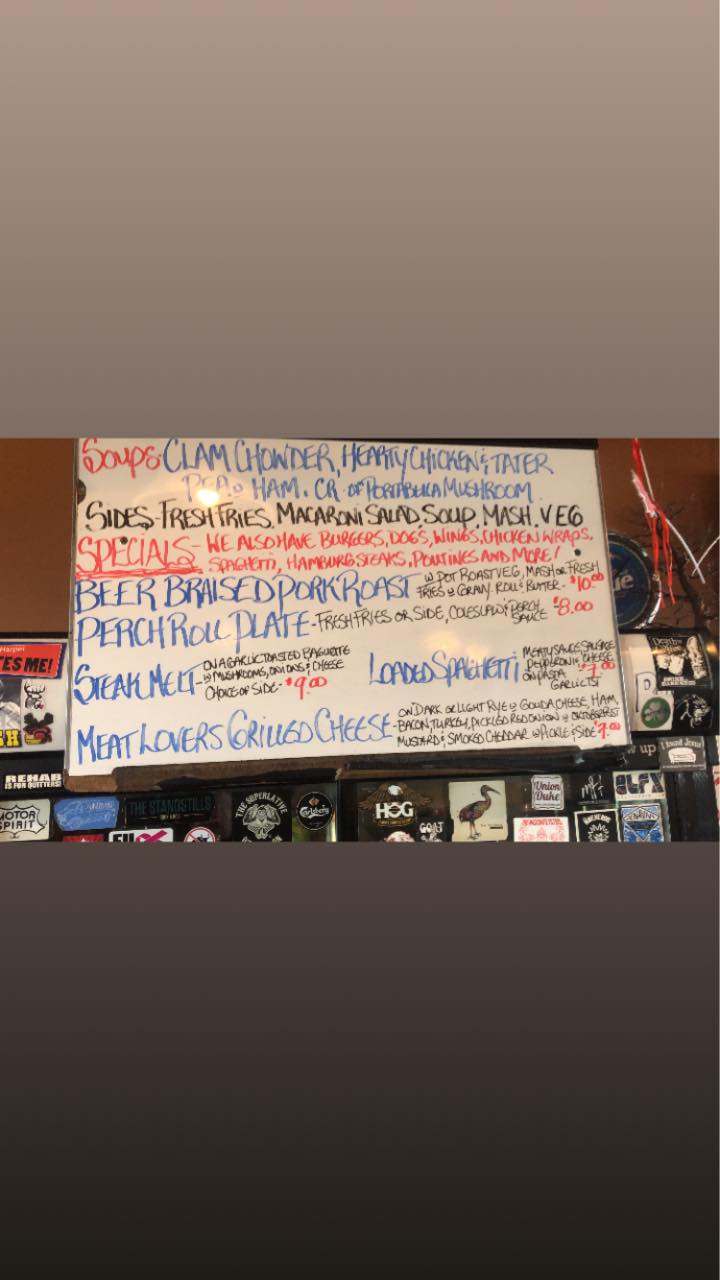 Soups: CLAM CHOWDER, HEARTY CHICKEN & TATER
PEA w HAM. CR OF PORTABELLA MUSHROOM
SIDES-FRESH FRIES, MACARONI SALAD, SOUP, MASH, VEG
SPECIALS- WE ALSO HAVE BURGERS, DOGS, WINGS, CHICKEN WRAPS,
SPAGHETTI, HAMBURG STEAKS, POUTINES AND MORE!
BEER BRAISED PORK ROAST w POT ROAST VEG, MASH OR FRESH
FRIES w GRAVY. ROLL & BUTTER- $10.00
PERCH ROLL PLATE-FRESH FRIES OR SIDE, COLESLAW & PERCH
SAUCE $8.00
STEAK MELT- ON A GARLIC TOASTED BAGUETTE
w MUSHROOMS, ONIONS & CHEESE
CHOICE OF SIDE- $9.00
LOADED SPAGHETTI MEATY SAUCE SAUSAGE
PEPPERONI & CHEESE
ON PASTA $7.00
GARLIC TST
MEAT LOVERS GRILLED CHEESE- ON DARK OR LIGHT RYE w GOUDA CHEESE, HAM,
BACON, TURKEY, PICKLED RED ONION w OKTOBERFEST
MUSTARD & SMOKED CHEDDAR w PICKLE & SIDE $9.00
Harper
ES ME!
REHAB
IS FOR QUITTERS!
MOTOR
SPIRIT
THE STANDSTILLS
THE SUPERLATIVE
Carlsberg
HOG
GOAT
Union
Duke
up
I found Jesus